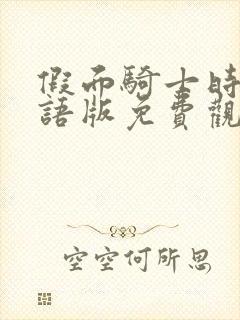 假而騎士時
語版免費觀
空空何所思